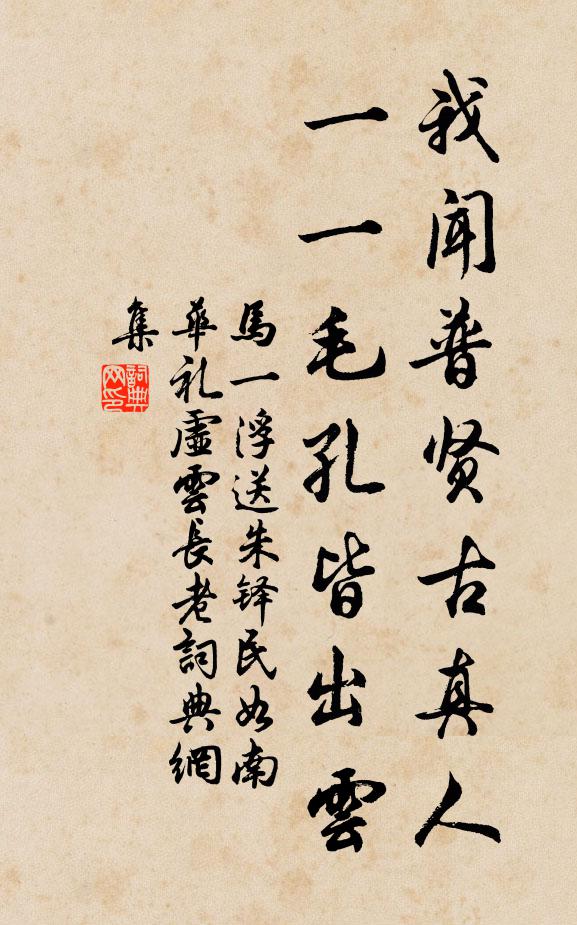 我闻普贤古真人
一一毛孔皆出雲
馬一浮送朱铎民如南
華礼虛雲長老詞典網
集
詞典
网印